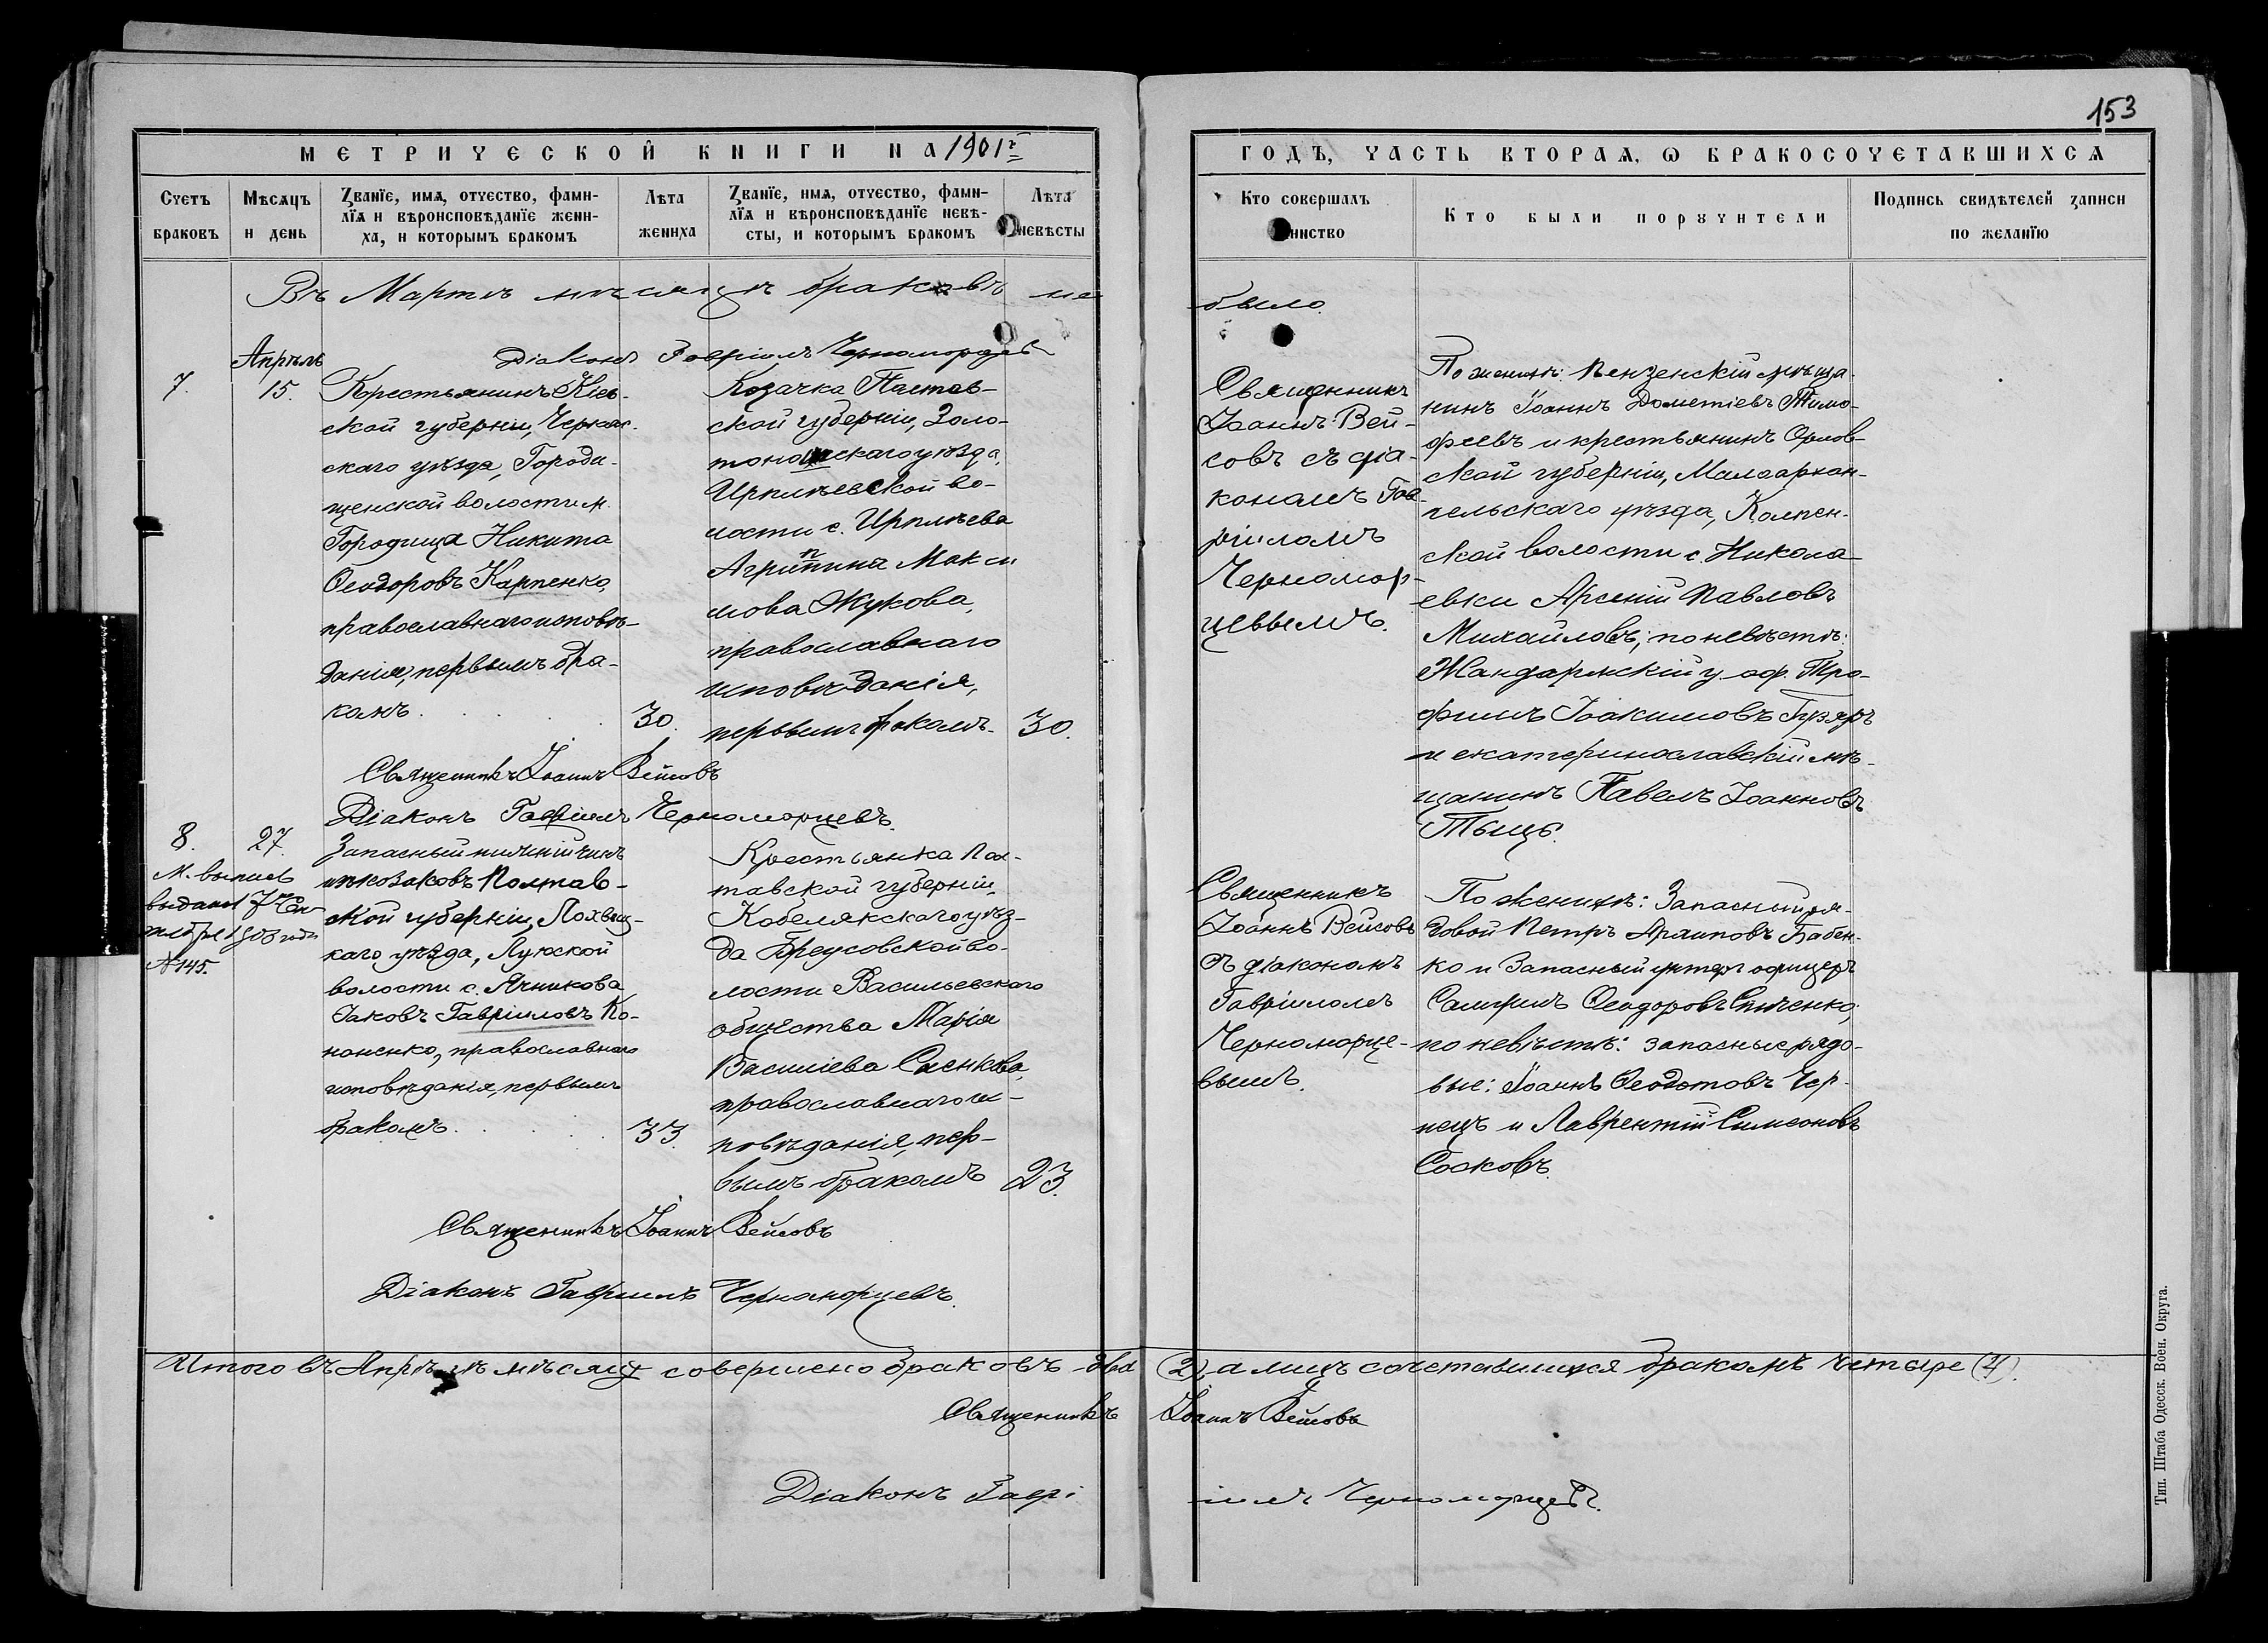 153
МЕТРИЧЕСКОЙ КНИГИ НА 1901 г
ГОДЪ, ЧАСТЬ ВТОРАѦ, Ѡ БРАКОСОЧЕТАВШИХСѦ
Счетъ
браковъ
Мѣсѧцъ
и день
Званїе, имѧ, отчество, фами-
лїѧ и вѣроисповѣданїе жени-
ха, и которымъ бракомъ
Лѣта
жениха
Званїе, имѧ, отчество, фами-
лїѧ и вѣроисповѣданїе невѣ-
сты, и которымъ бракомъ
Лѣта
невѣсты
Кто совершалъ
инство
Кто были порꙋчители
Подпись свидѣтелей записи
по желанїю
Въ Мартѣ мѣсяцѣ браковъ не
было.
Діаконъ Гавріилъ Черноморцевъ
7.
Апрѣль
15.
Крестьянинъ Кіев-
ской губерніи, Черкас-
скаго уѣзда, Городи-
щенской волости м.
Городища Никита
Ѳеодоровъ Карпенко,
православнаго исповѣ-
данія, первымъ бра-
комъ
30.
Козачка Полтав-
ской губерніи, Золо-
тоношскаго уѣзда,
Ирклѣевской во-
лости с. Ирклѣева
Агрипина Макси
мова Жукова,
православнаго
исповѣданія,
первымъ бракомъ.
30.
Священникъ
Іоаннъ Вей-
совъ съ діа-
кономъ Гав-
ріиломъ
Черномор-
цевымъ.
По женихѣ: Пензенскій мѣща-
нинъ Іоаннъ Дометіевъ Тимо-
феевъ и крестьянинъ Орлов-
ской губерніи, Малоархан-
гельскаго уѣзда, Колпен-
ской волости с. Никола-
евки Арсеній Павловъ
Михайловъ; по невѣстѣ:
Жандармскій у. оф. Тро-
фимъ Іоакимовъ
и екатеринославскій мѣ-
щанинъ Павелъ Іоанновъ
Священникъ Іоаннъ Вейсовъ
Діаконъ Гавріилъ Черноморцевъ.
8.
27.
М. выпись
выдана 7 Сен
тября 1903 года
№ 145.
Запасный нижній чинъ
изъ козаковъ Полтав-
ской губерніи, Лохвиц-
каго уѣзда, Лукской
волости с. Ячникова
Іаковъ Гавріиловъ Ко-
ноненко, православнаго
исповѣданія, первымъ
бракомъ
33.
Крестьянка Пол-
тавской губерніи,
Кобелякскаго уѣз-
да Бреусовской во-
лости Васильевскаго
общества Марія
Василіева Саенкова,
православнаго ис-
повѣданія, пер-
вымъ бракомъ
23.
Священникъ
Іоаннъ Вейсовъ
съ діакономъ
Гавріиломъ
Черноморце-
вымъ.
По женихѣ: Запасный ря-
довой Петръ Архиповъ Бабен-
ко и Запасный унтеръ офицеръ
Ѳеодоровъ
по невѣстѣ: запасные рядо-
вые: Іоаннъ Ѳеодотовъ Чер-
нецъ и Лаврентій Симеоновъ
Сосковъ.
Священникъ Іоаннъ Вейсовъ
Діаконъ Гавріилъ Черноморцевъ.
Итого въ Апрѣлѣ мѣсяцѣ совершено браковъ два (2), а лицъ сочетавшихся бракомъ четыре (4).
Священникъ Іоаннъ Вейсовъ
Діаконъ Гаврі іилъ Черноморцевъ.
Тип. Штаба Одесск. Воен. Округа.